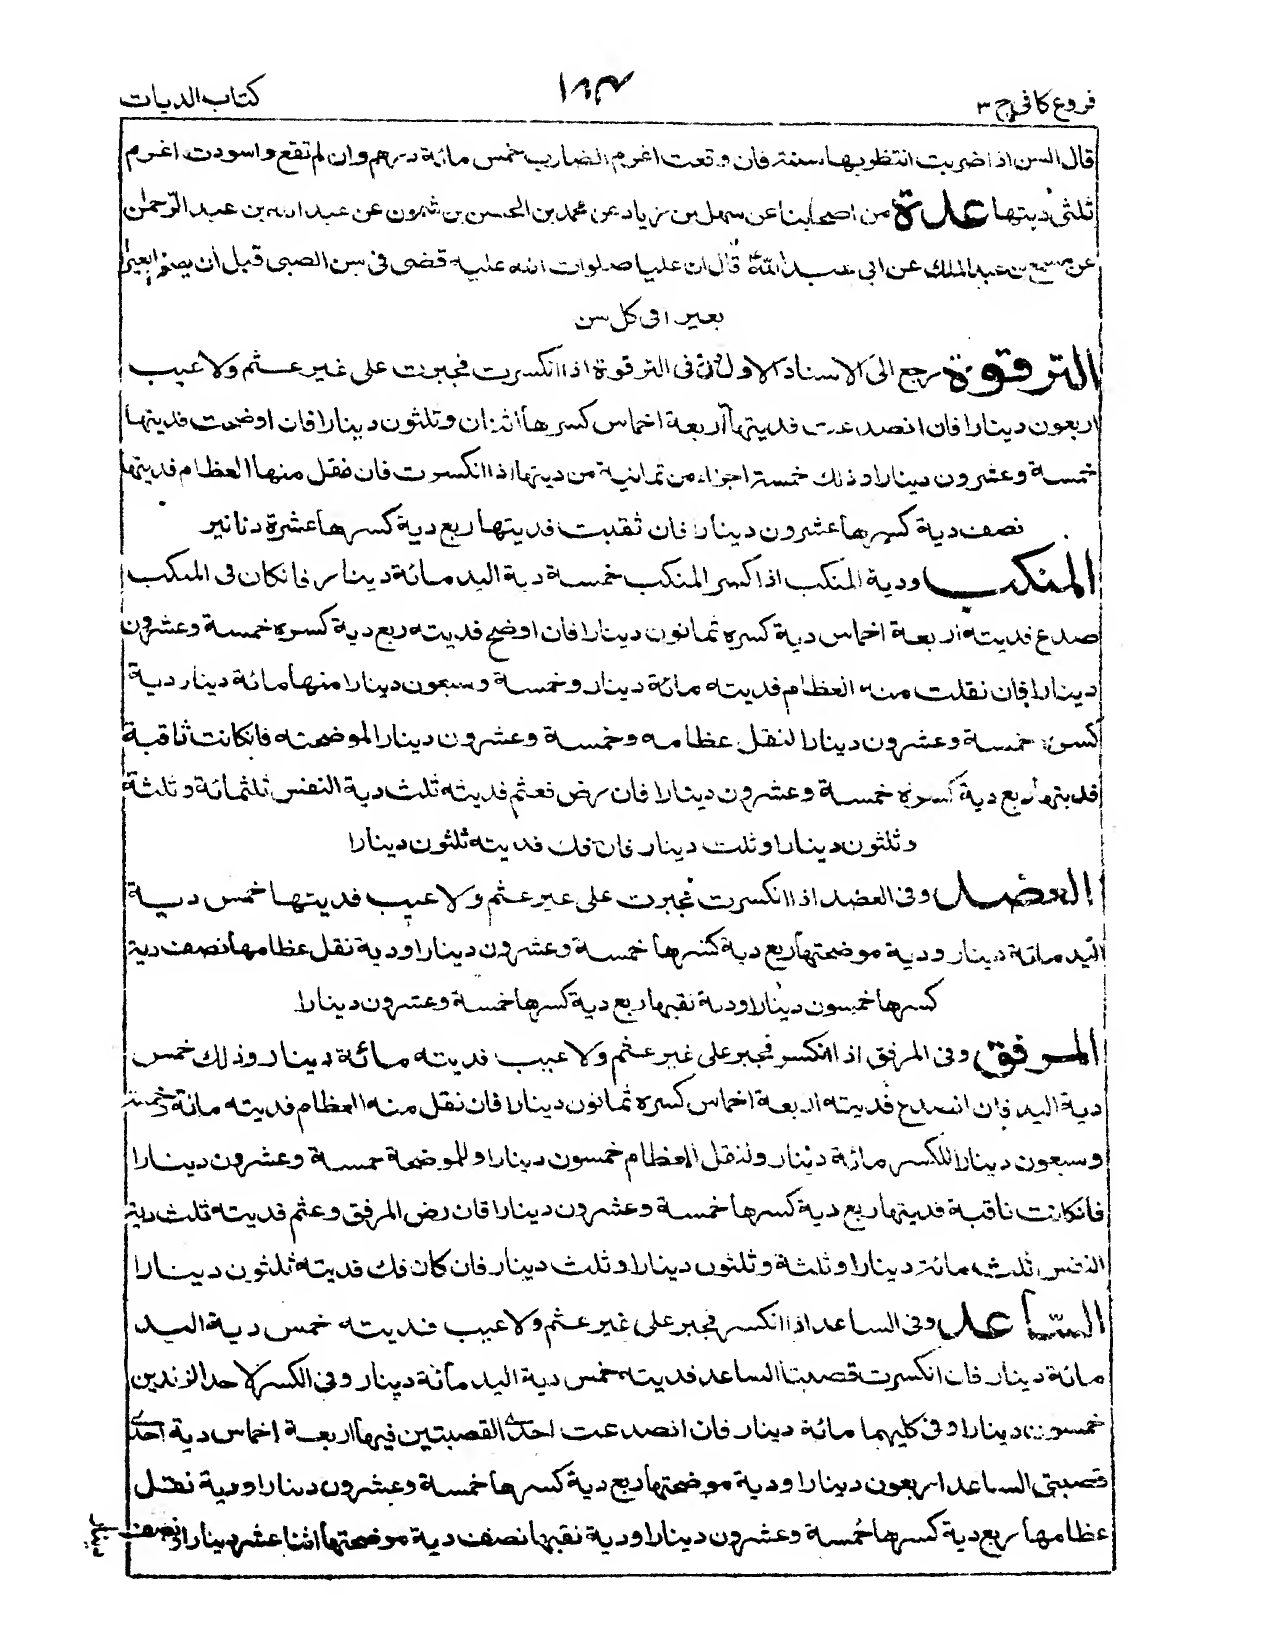 فروع كافى ج ٣
١٩٣
كتاب الديات
قال السن اذا ضربت انتظر بها سنة فان وقعت اغرم الضارب خمس مائة درهم وان لم تقع واسودت اغرم
ثلثى ديتها عدة من اصحابنا عن سهل بن زياد عن محمد بن الحسن بن شمون عن عبد الله بن عبد الرحمٰن
عن مسمع بن عبد الملك عن ابى عبد الله قال ان عليا صلوات الله عليه قضى فى سن الصبى قبل ان يصغر بعيرا
بعيرا فى كل سن
الترقوة رجع الى الاسناد الاول قال فى الترقوة اذا انكسرت فجبرت على غير عثم ولا عيب
اربعون دينارا فان انصدعت فديتها اربعة اخماس كسرها اثنان وثلثون دينارا فان اوضحت فديتها
خمسة وعشرون دينارا وذلك خمسة اجزاء من ثمانية من ديتها اذا انكسرت فان نقل منها العظام فديتها
نصف دية كسرها عشرون دينارا فان ثقبت فديتها ربع دية كسرها عشرة دنانير
المنكب ودية المنكب اذا كسر المنكب خمسة دية اليد مائة دينار فانكان فى المنكب
صدع فديته اربعة اخماس دية كسره ثمانون دينارا فان اوضح فديته ربع دية كسره خمسة وعشرون
دينارا فان نقلت منه العظام فديته مائة دينار وخمسة وسبعون دينارا منها مائة دينار دية
كسره خمسة وعشرون دينارا لنقل عظامه وخمسة وعشرون دينارا لموضحته فانكانت ثاقبة
فديتها ربع دية كسره خمسة وعشرون دينارا فان رض فعثم فديته ثلث دية النفس ثلثمائة وثلثة
وثلثون دينارا وثلث دينار فان فك فديته ثلثون دينارا
العضد وفى العضد اذا انكسرت فجبرت على غير عثم ولا عيب فديتها خمس دية
اليد مائة دينار ودية موضحتها ربع دية كسرها خمسة وعشرون دينارا ودية نقل عظامها نصف دية
كسرها خمسون دينارا ودية نقبها ربع دية كسرها خمسة وعشرون دينارا
المرفق وفى المرفق اذا انكسر فجبر على غير عثم ولا عيب فديته مائة دينار وذلك خمس
دية اليد فان انصدع فديته اربعة اخماس كسره ثمانون دينارا فان نقل منه العظام فديته مائة وخمسة
وسبعون دينارا للكسر مائة دينار ولنقل العظام خمسون دينارا وللموضحة خمسة وعشرون دينارا
فانكانت ناقبة فديتها ربع دية كسرها خمسة وعشرون دينارا فان رض المرفق وعثم فديته ثلث دية
النفس ثلث مائة دينارا وثلثة وثلثون دينارا وثلث دينار فان كان فك فديته ثلثون دينارا
الساعد وفى الساعد اذا انكسر فجبر على غير عثم ولا عيب فديته خمس دية اليد
مائة دينار فان انكسرت قصبتا الساعد فديته خمس دية اليد مائة دينار وفى الكسر لاحد الزندين
خمسون دينارا وفى كليهما مائة دينار فان انصدعت احدى القصبتين فيها اربعة اخماس دية احدى
قصبتى الساعد اربعون دينارا ودية موضحتها ربع دية كسرها خمسة وعشرون دينارا ودية نقل
عظامها ربع دية كسرها خمسة وعشرون دينارا ودية نقبها نصف دية موضحتها اثنا عشر دينارا ونصف